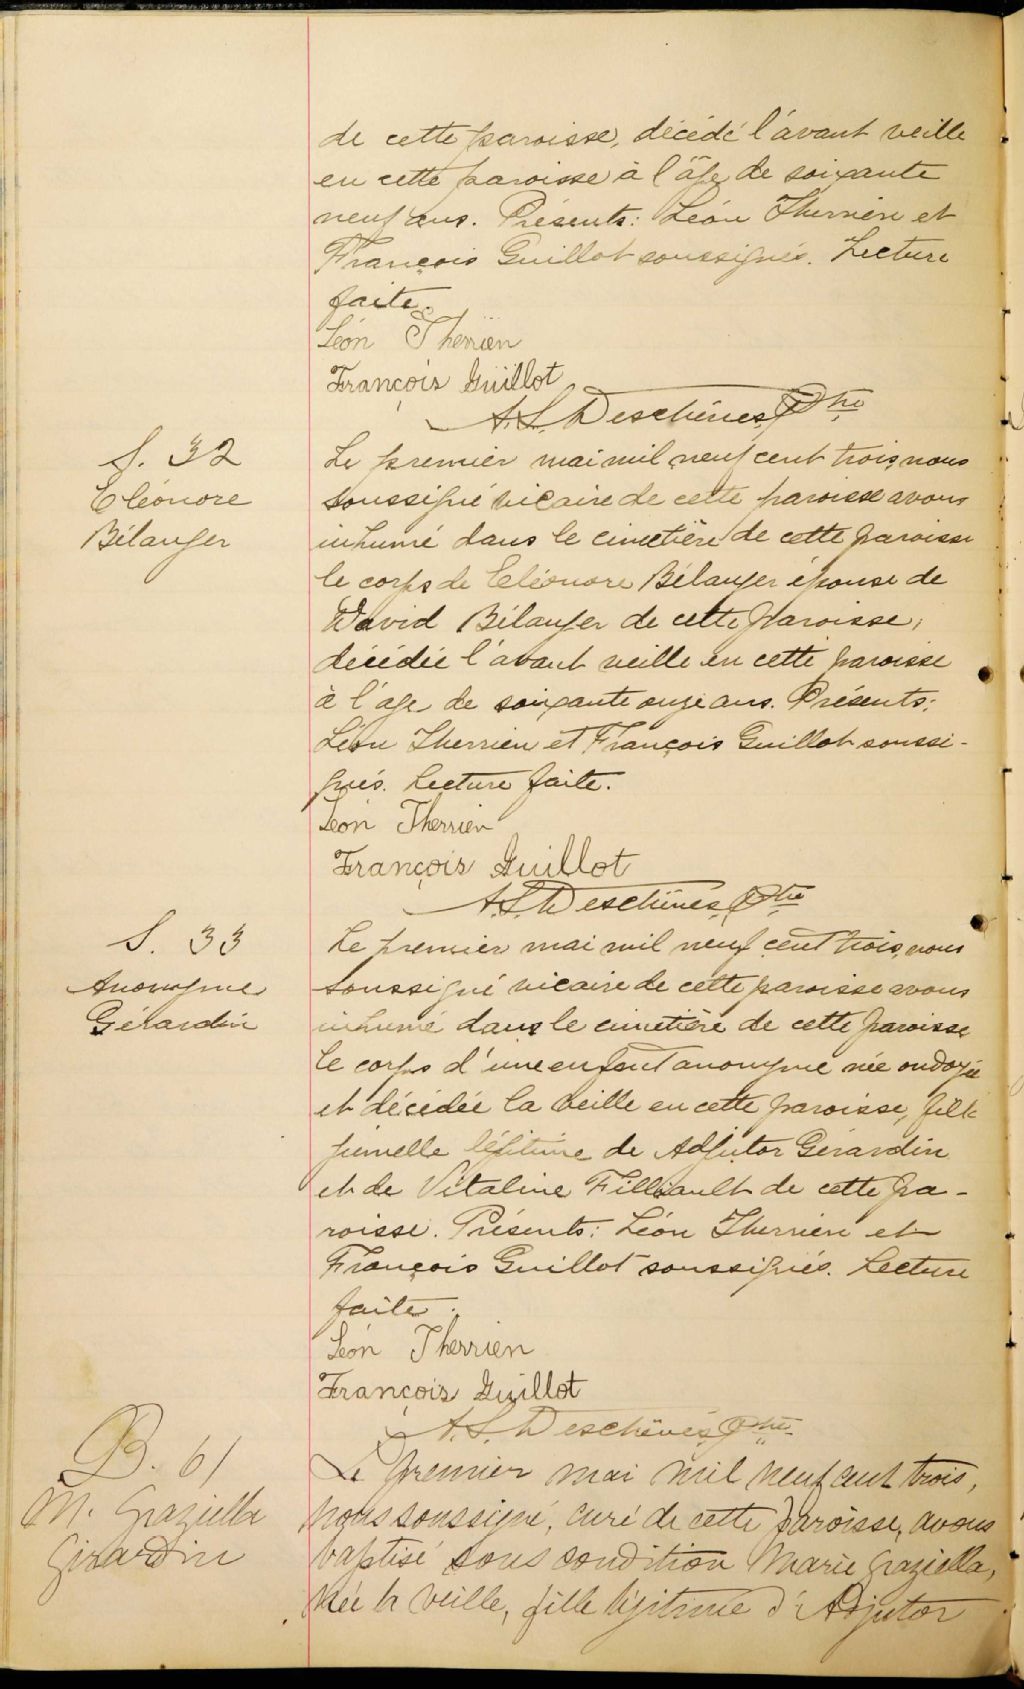 de cette paroisse, décédé l'avant veille
en cette paroisse à l'âge de soixante
neuf ans. Présents: Léon Therrien et
François Guillot soussignés. Lecture
faite.
Léon Therrien
François Guillot
A.S. Deschênes, Ptre
S. 32
Eléonore
Bélanger
Le premier mai mil neuf cent trois, nous
soussigné vicaire de cette paroisse avons
inhumé dans le cimetière de cette paroisse
le corps de Eléonore Bélanger épouse de
David Bélanger de cette paroisse,
décédée l'avant veille en cette paroisse
à l'age de soixante onze ans. Présents:
Léon Therrien et François Guillot soussi-
gnés. Lecture faite.
Léon Therrien
François Guillot
A.S. Deschênes, Ptre
S. 33
Anonyme
Gérardin
Le premier mai mil neuf cent trois, nous
soussigné vicaire de cette paroisse avons
inhumé dans le cimetière de cette paroisse
le corps d'une enfant anonyme née ondoyée
et décédée la veille en cette paroisse, fille
jumelle légitime de Adjutor Gérardin
et de Vitaline Filliault de cette pa-
roisse. Présents: Léon Therrien et
François Guillot soussignés. Lecture
faite.
Léon Therrien
François Guillot
A.S. Deschênes, Ptre
B. 61
M. Graziella
Girardin
Le premier mai mil neuf cent trois,
nous soussigné, curé de cette paroisse, avons
baptisé sous condition Marie Graziella,
née la veille, fille légitime d'Adjutor